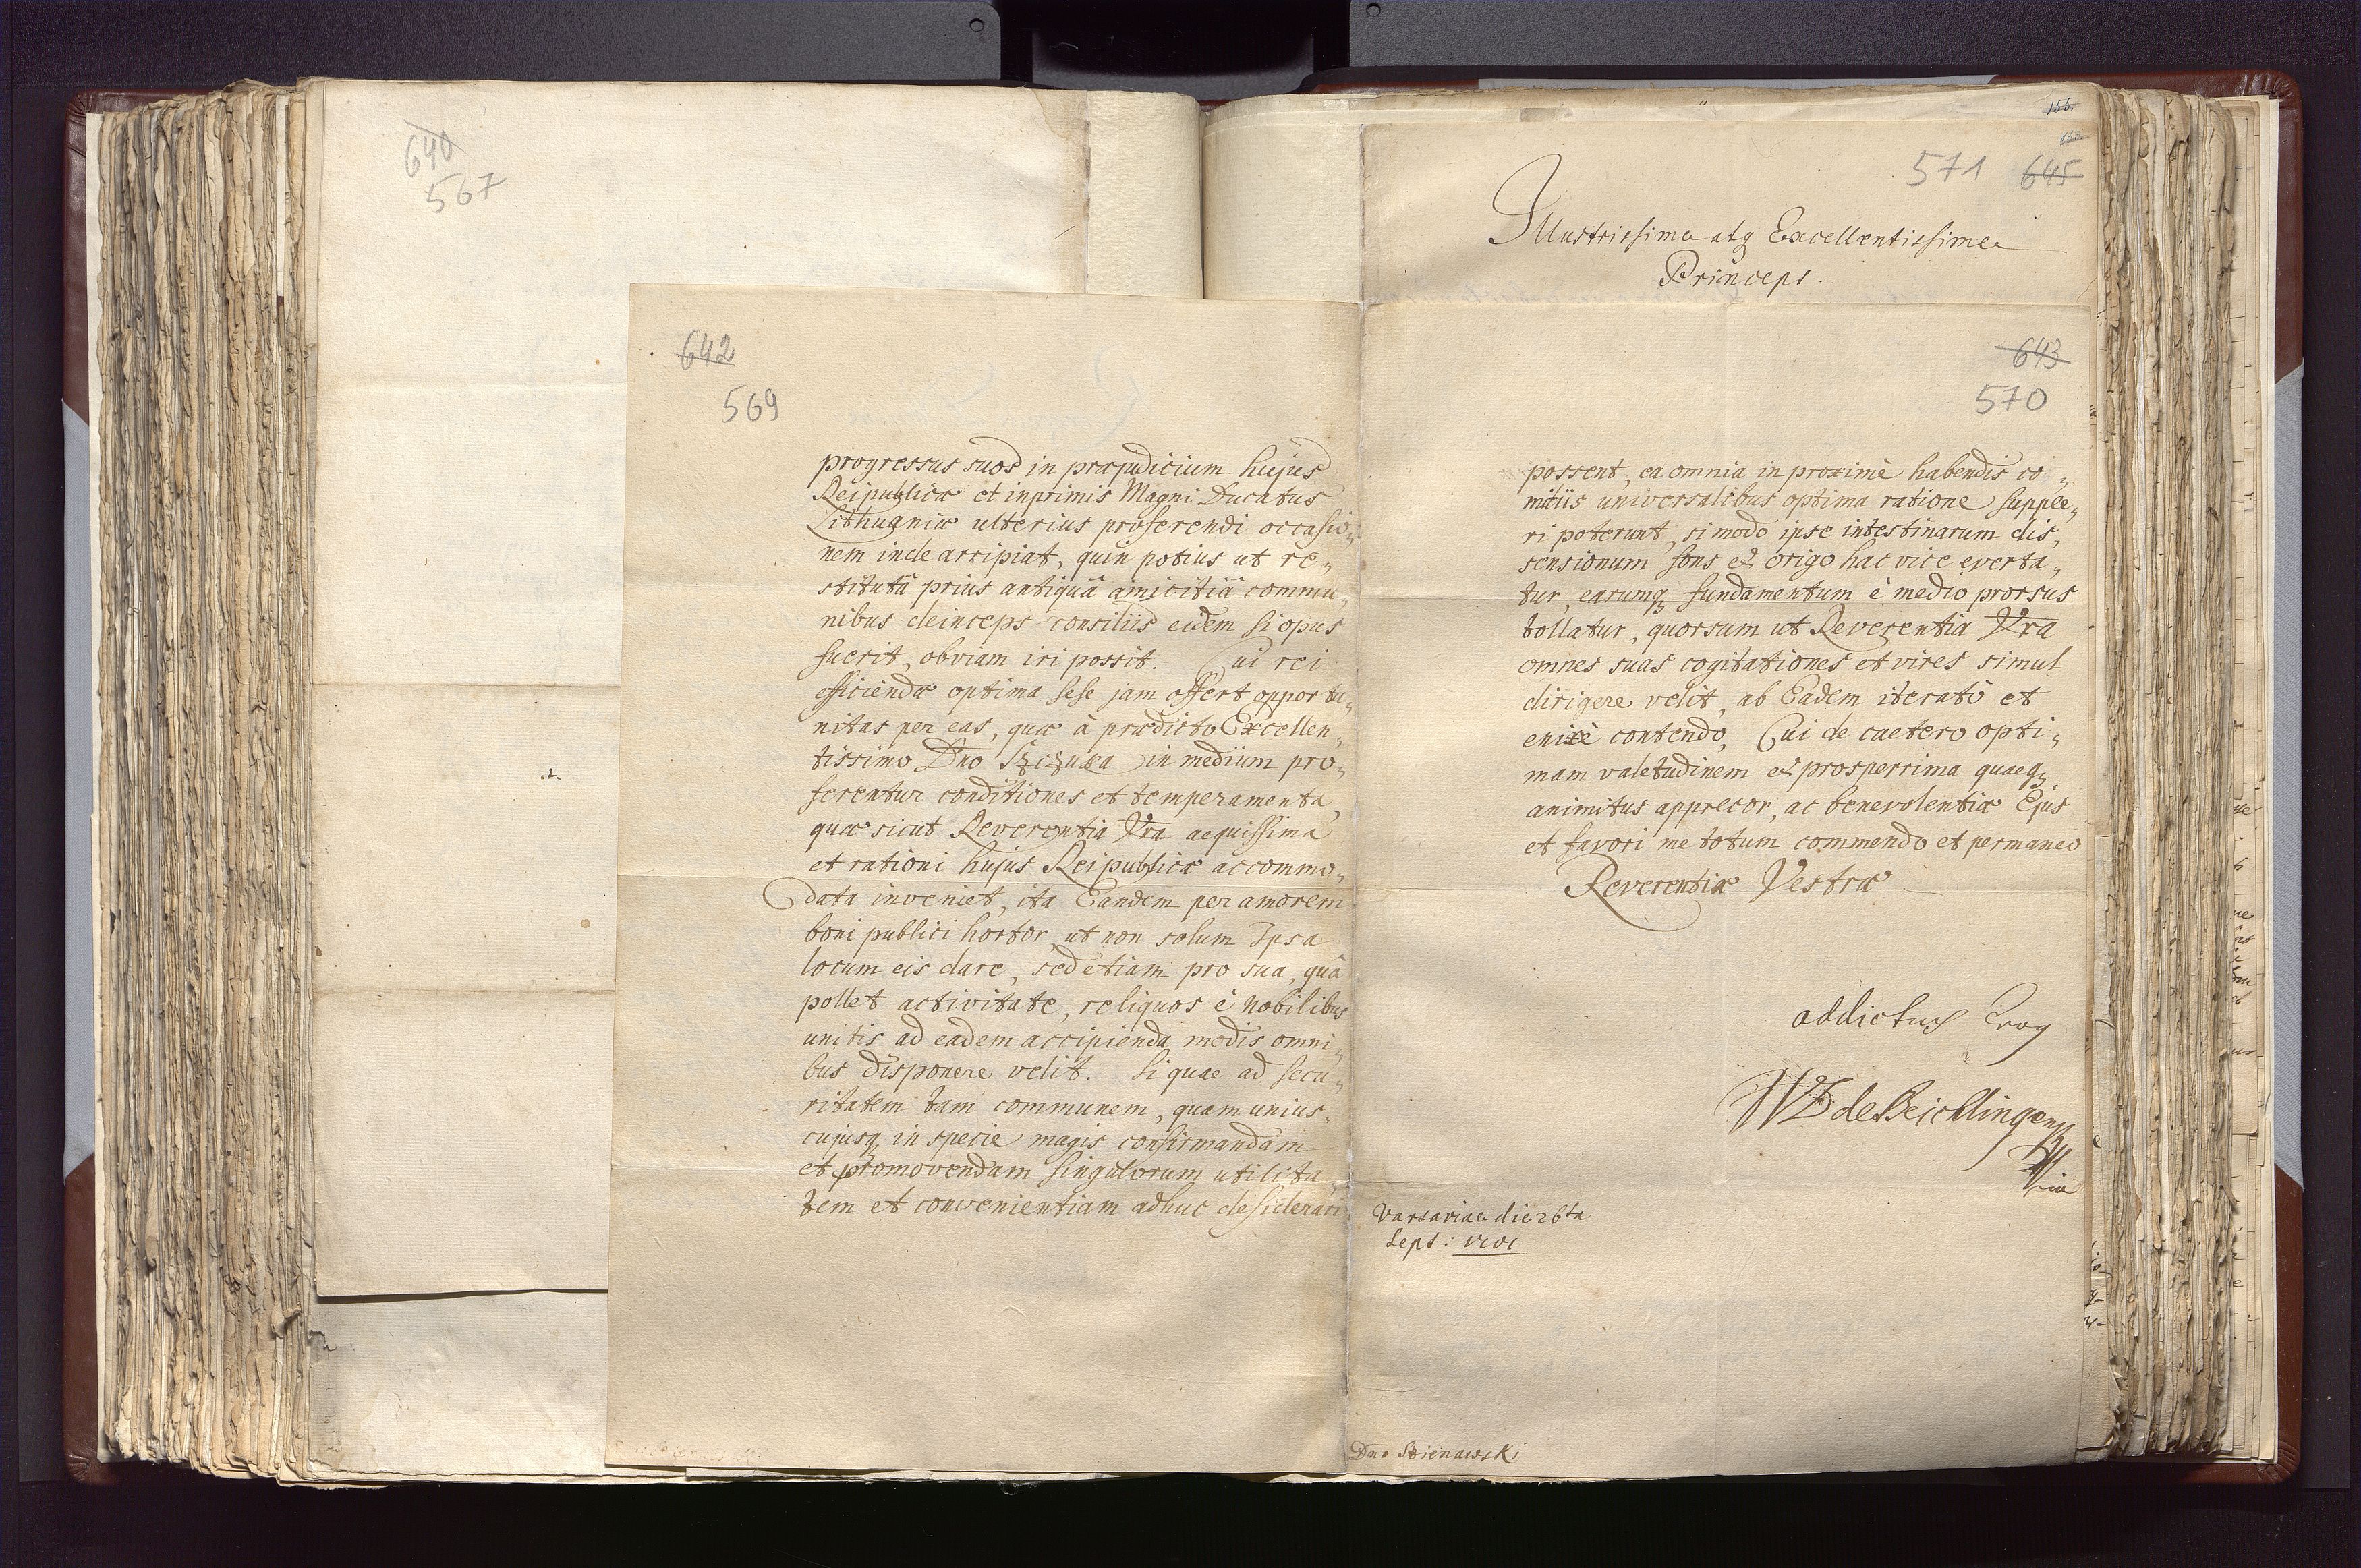 640
567
642
569
progressus suos in præjudicium hujus
Reipublicæ et inprimis Magni Ducatus
Lithuaniæ ulterius proferendi occasio„
nem inde arripiat, quin potius ut re„
stitutâ prius antiquâ amicitiâ commu„
nibus deinceps consiliis eidem si opus
fuerit, obviam iri possit. Cui rei
efficiendæ optima sese jam offert opportu„
nitas per eas, quæ à prædicto Excellen„
tissimo Dno Szczuka in medium pro„
ferentur conditiones et temperamenta,
quæ sicut Reverentia Vra aequissima
et rationi hujus Reipublicæ accommo„
data inveniet, ita Eandem per amorem
boni publici hortor, ut non solum Ipsa
locum eis dare, sed etiam pro sua, quâ
pollet activitate, reliquos è Nobilibus
unitis ad eadem accipienda modis omni„
bus disponere velit. Si quae ad secu„
ritatem tam communem, quam unius„
cujusq in specie magis confirmandam
et promovendam singulorum utilita„
tem et convenientiam adhuc desiderari
155.
571 645
Illustrissime atq Excellentissime
Princeps.
643
570
possent, ea omnia in proximè habendis co„
mitiis universalibus optima ratione supple„
ri poterunt, si modò ipse intestinarum dis„
sensionum fons et origo hac vice everta„
tur, earumq fundamentum è medio prorsus
tollatur, quorsum ut Reverentia Vra
omnes suas cogitationes et vires simul
dirigere velit, ab Eadem iteratò et
enixè contendo, Cui de caetero opti„
mam valetudinem et prosperrima quaeq
animitus apprecor, ac benevolentiæ Ejus
et favori me totum commendo et permaneo
Reverentiæ Vestræ
addictus
WD de Beichlingen
Varsaviae die 26ta
Sept: 1701
Dno Sienawski